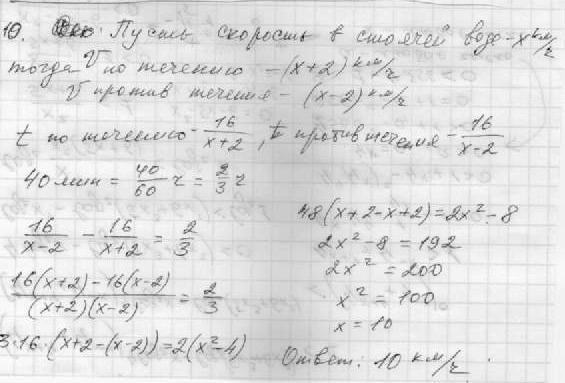 10. Пусть скорость в стоячей воде - x км/ч
тогда V по течению - (x+2) км/ч
V против течения - (x-2) км/ч
t по течению - 16/(x+2), t против течения - 16/(x-2)
40 мин = 40/60 ч = 2/3 ч
16/(x-2) - 16/(x+2) = 2/3
(16(x+2)-16(x-2))/((x+2)(x-2)) = 2/3
3·16·(x+2-(x-2))=2(x²-4)
48(x+2-x+2)=2x²-8
2x²-8=192
2x²=200
x²=100
x=10
Ответ: 10 км/ч